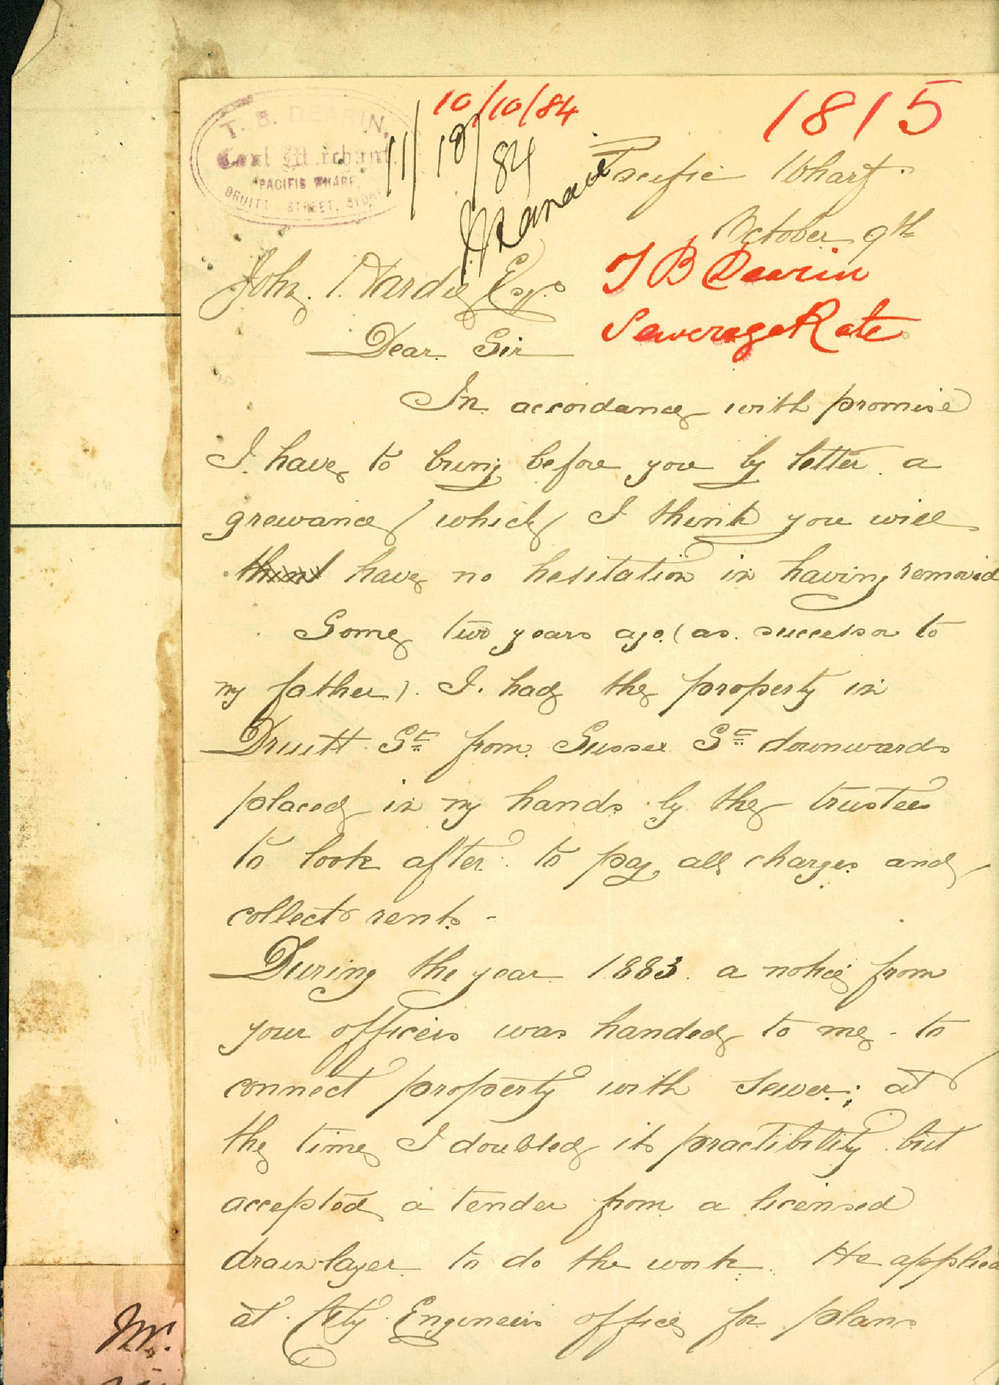 10/10/84
1815
T. B. DEARIN,
Coal Merchant
PACIFIC WHARF,
DRUITT STREET, SYDNEY
11/10/84
Pacific Wharf.
October 9th
John Hardie Esqr.
T B Dearin
Sewerage Rate
Dear Sir
In accordance with promise
I have to bring before you by letter a
greivance which I think you will
think have no hesitation in having removed
Some two years ago (as successor to
my father). I had the property in
Druitt St from Sussex St downwards
placed in my hands by the trustees
to look after. to pay all charges and
collect rents -
During the year 1883 a notice from
your officers was handed to me - to
connect property with sewer; at
the time I doubted its practibility but
accepted a tender from a licensed
drain layer to do the work. He applied
at City Engineers office for plans
Mr.